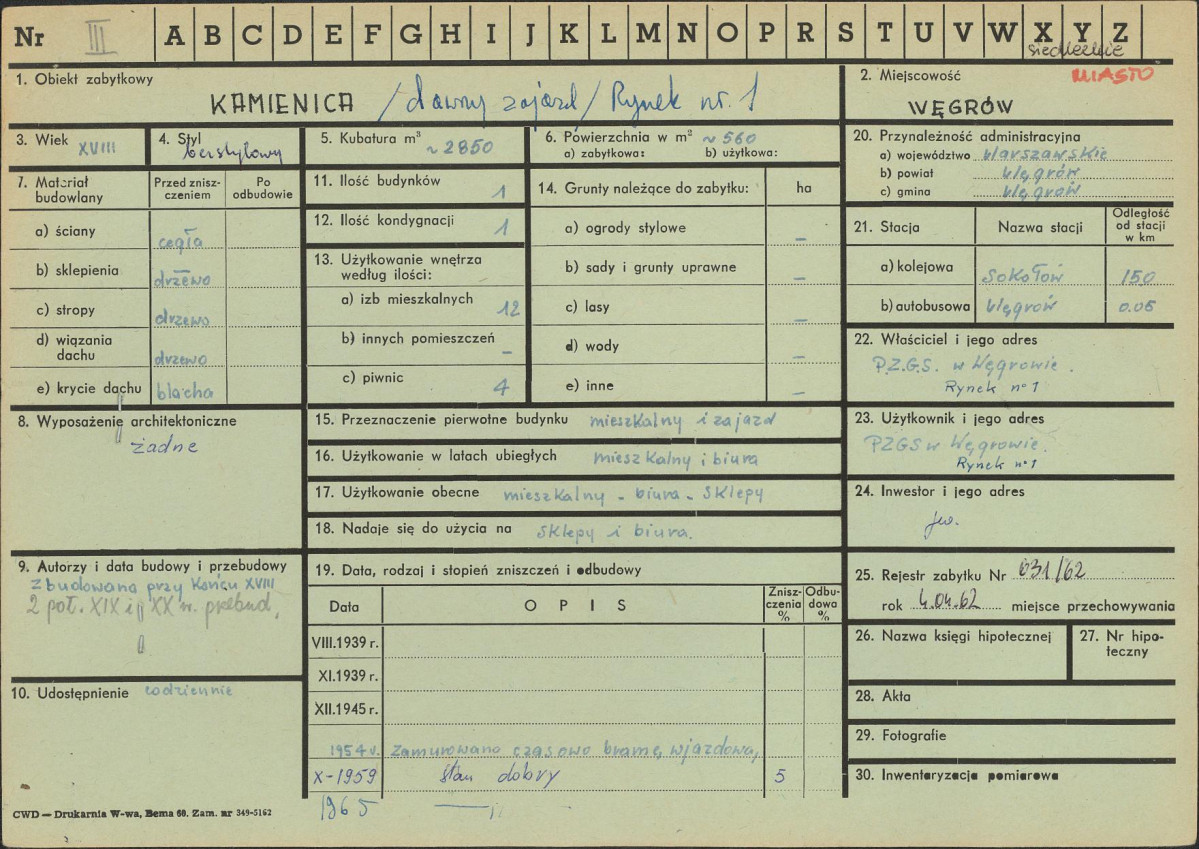 Nr III A B C D E F G H I J K L M N O P R S T U V W X Y Z
siedleckie
1. Obiekt zabytkowy
KAMIENICA /dawny zajazd/ Rynek nr. 1
2. Miejscowość
MIASTO
WĘGRÓW
3. Wiek XVIII
4. Styl bezstylowy
5. Kubatura m³ ~ 2850
6. Powierzchnia w m² ~ 560
a) zabytkowa: b) użytkowa:
7. Materiał budowlany
Przed zniszczeniem
Po odbudowie
a) ściany cegła
b) sklepienia drzewo
c) stropy drzewo
d) wiązania dachu drzewo
e) krycie dachu blacha
8. Wyposażenie architektoniczne
żadne
9. Autorzy i data budowy i przebudowy
zbudowana przy końcu XVIII
2 poł. XIX i p XX w. przebud,
10. Udostępnienie codziennie
11. Ilość budynków 1
12. Ilość kondygnacji 1
13. Użytkowanie wnętrza
według ilości:
a) izb mieszkalnych 12
b) innych pomieszczeń –
c) piwnic 4
14. Grunty należące do zabytku: ha
a) ogrody stylowe –
b) sady i grunty uprawne –
c) lasy –
d) wody –
e) inne –
15. Przeznaczenie pierwotne budynku mieszkalny i zajazd
16. Użytkowanie w latach ubiegłych mieszkalny i biura
17. Użytkowanie obecne mieszkalny - biura - sklepy
18. Nadaje się do użycia na sklepy i biura.
19. Data, rodzaj i stopień zniszczeń i odbudowy
Data OPIS Zniszczenia % Odbudowa %
VIII.1939 r.
XI.1939 r.
XII.1945 r.
1954 r. zamurowano czasowo bramę wjazdową,
X-1959 stan dobry 5
1965 —„
20. Przynależność administracyjna
a) województwo Warszawskie
b) powiat Węgrów
c) gmina Węgrów
21. Stacja Nazwa stacji Odległość od stacji w km
a) kolejowa Sokołów 150
b) autobusowa Węgrów 0.05
22. Właściciel i jego adres
P.Z.G.S. w Węgrowie.
Rynek n° 1
23. Użytkownik i jego adres
PZGS w Węgrowie.
Rynek n° 1
24. Inwestor i jego adres
jw.
25. Rejestr zabytku Nr 631/62
rok 4.04.62 miejsce przechowywania
26. Nazwa księgi hipotecznej
27. Nr hipoteczny
28. Akta
29. Fotografie
30. Inwentaryzacja pomiarowa
CWD — Drukarnia W-wa, Bema 60. Zam. nr 349-5162